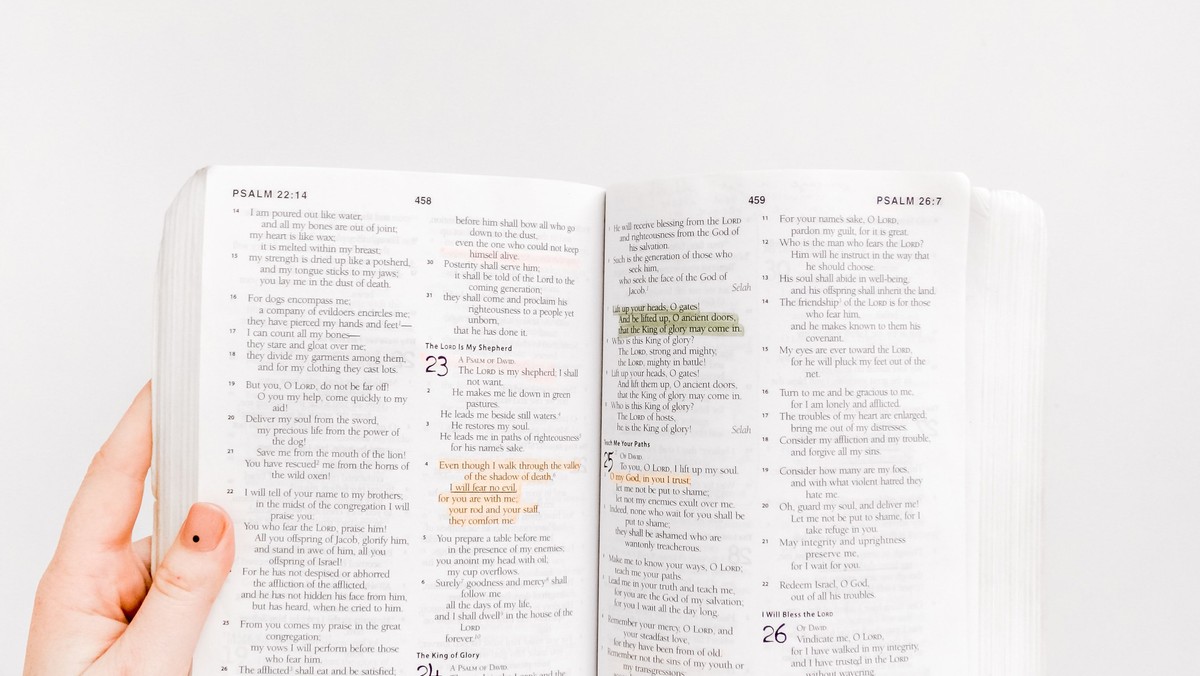 PSALM 22:14
458
14 I am poured out like water,
and all my bones are out of joint;
my heart is like wax;
it is melted within my breast;
15 my strength is dried up like a potsherd,
and my tongue sticks to my jaws;
you lay me in the dust of death.
16 For dogs encompass me;
a company of evildoers encircles me;
they have pierced my hands and feet—
17 I can count all my bones—
they stare and gloat over me;
18 they divide my garments among them,
and for my clothing they cast lots.
19 But you, O LORD, do not be far off!
O you my help, come quickly to my
aid!
20 Deliver my soul from the sword,
my precious life from the power of
the dog!
21 Save me from the mouth of the lion!
You have rescued² me from the horns of
the wild oxen!
22 I will tell of your name to my brothers;
in the midst of the congregation I will
praise you:
You who fear the LORD, praise him!
All you offspring of Jacob, glorify him,
and stand in awe of him, all you
offspring of Israel!
For he has not despised or abhorred
the affliction of the afflicted,
and he has not hidden his face from him,
but has heard, when he cried to him.
25 From you comes my praise in the great
congregation;
my vows I will perform before those
who fear him.
26 The afflicted³ shall eat and be satisfied;
before him shall bow all who go
down to the dust,
even the one who could not keep
himself alive.
30 Posterity shall serve him;
it shall be told of the Lord to the
coming generation;
31 they shall come and proclaim his
righteousness to a people yet
unborn,
that he has done it.
The LORD Is My Shepherd
23 A PSALM OF DAVID.
The LORD is my shepherd; I shall
not want.
2 He makes me lie down in green
pastures.
He leads me beside still waters.⁴
3 He restores my soul.
He leads me in paths of righteousness⁵
for his name's sake.
4 Even though I walk through the valley
of the shadow of death,⁶
I will fear no evil,
for you are with me;
your rod and your staff,
they comfort me.
5 You prepare a table before me
in the presence of my enemies;
you anoint my head with oil;
my cup overflows.
6 Surely⁷ goodness and mercy⁸ shall
follow me
all the days of my life,
and I shall dwell⁹ in the house of the
LORD
forever.¹⁰
The King of Glory
24 A PSALM OF DAVID.
and the
459
PSALM 26:7
He will receive blessing from the LORD
and righteousness from the God of
his salvation.
Such is the generation of those who
seek him,
who seek the face of the God of
Jacob. Selah
Lift up your heads, O gates!
And be lifted up, O ancient doors,
that the King of glory may come in.
Who is this King of glory?
The LORD, strong and mighty,
the LORD, mighty in battle!
Lift up your heads, O gates!
And lift them up, O ancient doors,
that the King of glory may come in.
Who is this King of glory?
The LORD of hosts,
he is the King of glory! Selah
Teach Me Your Paths
25 OF DAVID.
To you, O LORD, I lift up my soul.
O my God, in you I trust;
let me not be put to shame;
let not my enemies exult over me.
Indeed, none who wait for you shall be
put to shame;
they shall be ashamed who are
wantonly treacherous.
Make me to know your ways, O LORD;
teach me your paths.
Lead me in your truth and teach me,
for you are the God of my salvation;
for you I wait all the day long.
Remember your mercy, O LORD, and
your steadfast love,
for they have been from of old.
Remember not the sins of my youth or
my transgressions;
11 For your name's sake, O LORD,
pardon my guilt, for it is great.
12 Who is the man who fears the LORD?
Him will he instruct in the way that
he should choose.
13 His soul shall abide in well-being,
and his offspring shall inherit the land.
14 The friendship of the LORD is for those
who fear him,
and he makes known to them his
covenant.
15 My eyes are ever toward the LORD,
for he will pluck my feet out of the
net.
16 Turn to me and be gracious to me,
for I am lonely and afflicted.
17 The troubles of my heart are enlarged;
bring me out of my distresses.
18 Consider my affliction and my trouble,
and forgive all my sins.
19 Consider how many are my foes,
and with what violent hatred they
hate me.
20 Oh, guard my soul, and deliver me!
Let me not be put to shame, for I
take refuge in you.
21 May integrity and uprightness
preserve me,
for I wait for you.
22 Redeem Israel, O God,
out of all his troubles.
I Will Bless the LORD
26 OF DAVID.
Vindicate me, O LORD,
for I have walked in my integrity,
and I have trusted in the LORD
without wavering.